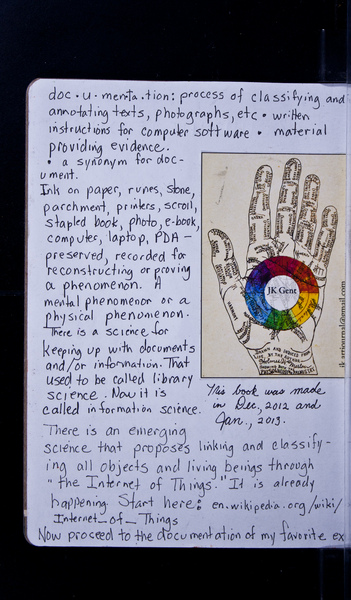 doc · u · menta · tion: process of classifying and
annotating texts, photographs, etc • written
instructions for computer software • material
providing evidence.
• a synonym for doc-
ument.
Ink on paper, runes, stone,
parchment, printers, scroll,
stapled book, photo, e-book,
computer, laptop, PDA –
preserved, recorded for
reconstructing or proving
a phenomenon. A
mental phenomenon or a
physical phenomenon.
There is a science for
keeping up with documents
and/or information. That
used to be called library
science. Now it is
called information science.
JK Gent
This book was made
in Dec., 2012 and
Jan., 2013.
There is an emerging
science that proposes linking and classify-
ing all objects and living beings through
"the Internet of Things." It is already
happening. Start here: en.wikipedia.org/wiki/
Internet_of_Things
Now proceed to the documentation of my favorite ex